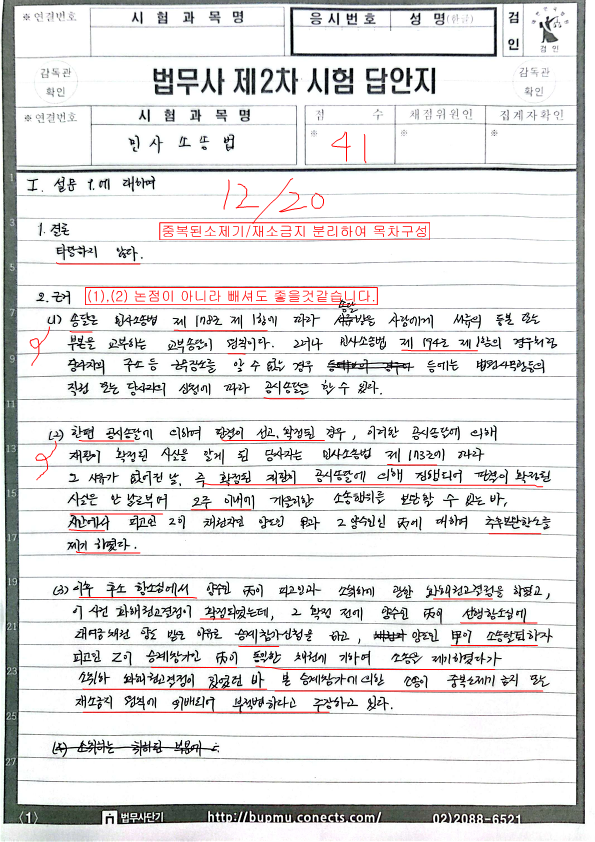 ※연결번호
시 험 과 목 명
응시번호
성 명(한글)
검
인
검 인
감독관
확인
법무사 제2차 시험 답안지
감독관
확인
※연결번호
시 험 과 목 명
점 수
채점위원인
집계자확인
민사소송법
※
41
※
※
1
I. 설문 1.에 대하여
12/20
3
1. 결론
중복된소제기/재소금지 분리하여 목차구성
타당하지 않다.
5
2. 근거
(1).(2) 논점이 아니라 빼셔도 좋을것같습니다.
송달
7
(1) 송달은 민사소송법 제178조 제1항에 따라 받을 사람에게 서류의 등본 또는
부본을 교부하는 교부송달이 원칙이다. 그러나 민사소송법 제194조 제1항의 경우처럼
9
당사자의 주소 등 근무장소를 알 수 없는 경우 등에는 법원사무관등의
직권 또는 당사자의 신청에 따라 공시송달을 할 수 있다.
11
(2) 한편 공시송달에 의하여 판결이 선고, 확정된 경우, 이러한 공시송달에 의해
13
재판이 확정된 사실을 알게 된 당사자는 민사소송법 제173조에 따라
그 사유가 없어진 날, 즉 확정된 재판이 공시송달에 의해 진행되어 판결이 확정된
15
사실을 안 날로부터 2주 이내에 게을리한 소송행위를 보완할 수 있는 바,
사안에서 피고인 乙이 채권자인 양도인 甲과 그 양수인인 丙에 대하여 추후보완항소를
17
제기하였다.
19
(3) 이후 추후 항소심에서 양수인 丙이 피고인과 소취하에 관한 화해권고결정을 하였고,
이 사건 화해권고결정이 확정되었는데, 그 확정 전에 양수인 丙이 선행항소심에
21
대여금채권 양도 받은 이유로 승계참가신청을 하고, 양도인 甲이 소송탈퇴하자
피고인 乙이 승계참가인 丙이 동일한 채권에 기하여 소송을 제기하였다가
23
소취하 화해권고결정이 있었던 바 본 승계참가에 의한 소송이 중복소제기 금지 또는
재소금지 원칙에 위배되어 부적법하다고 주장하고 있다.
25
27
〈1〉
법무사단기
http://bupmu.conects.com/
02)2088-6521